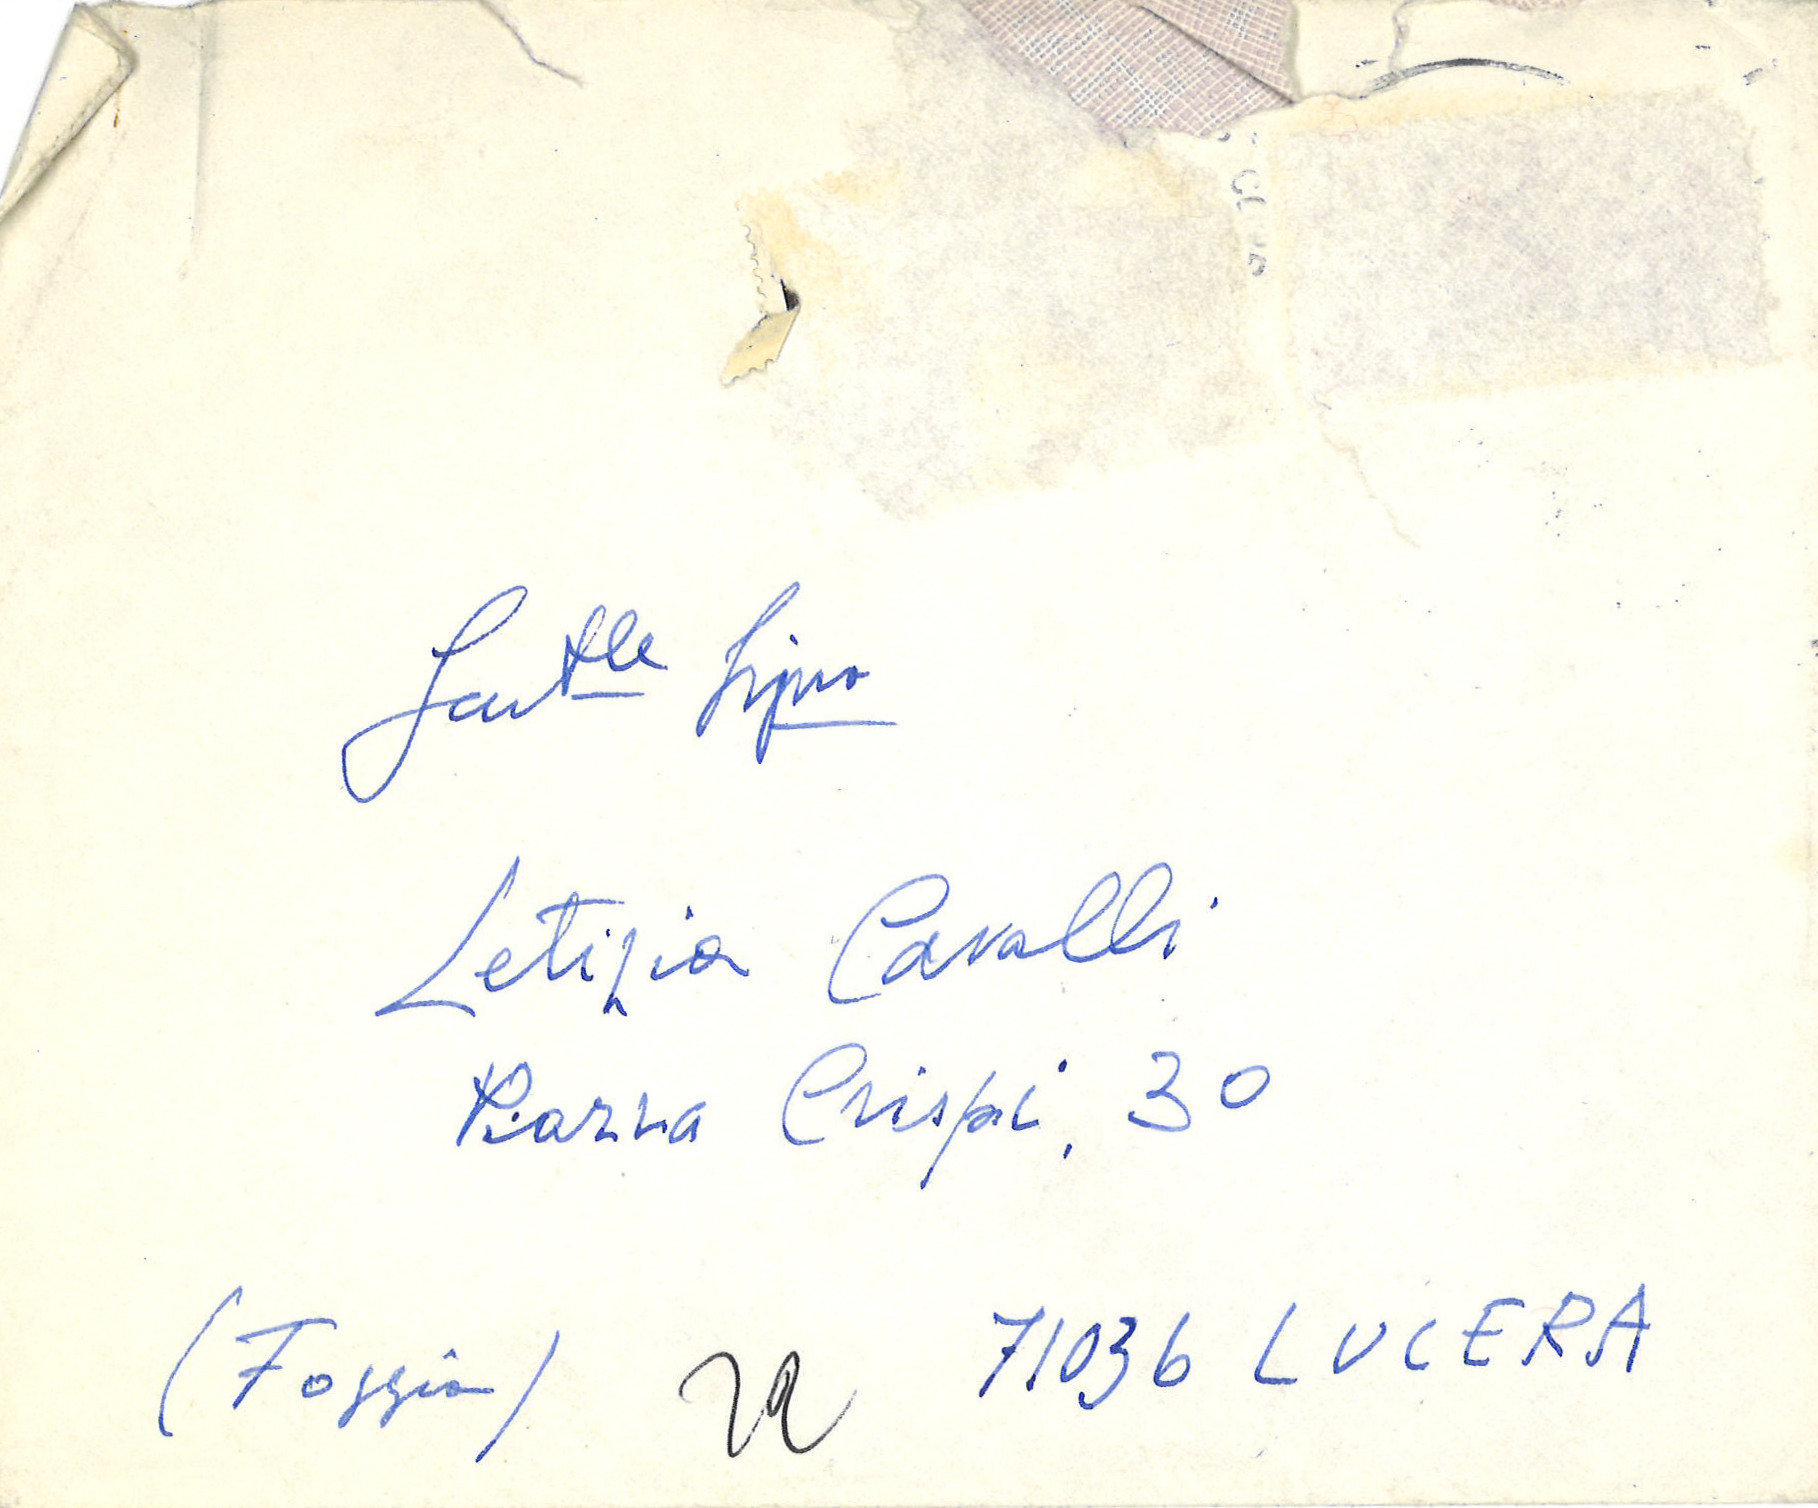 Gent.le Sig.na
Letizia Cavalli
Piazza Crispi, 30
(Foggia) 71036 LUCERA